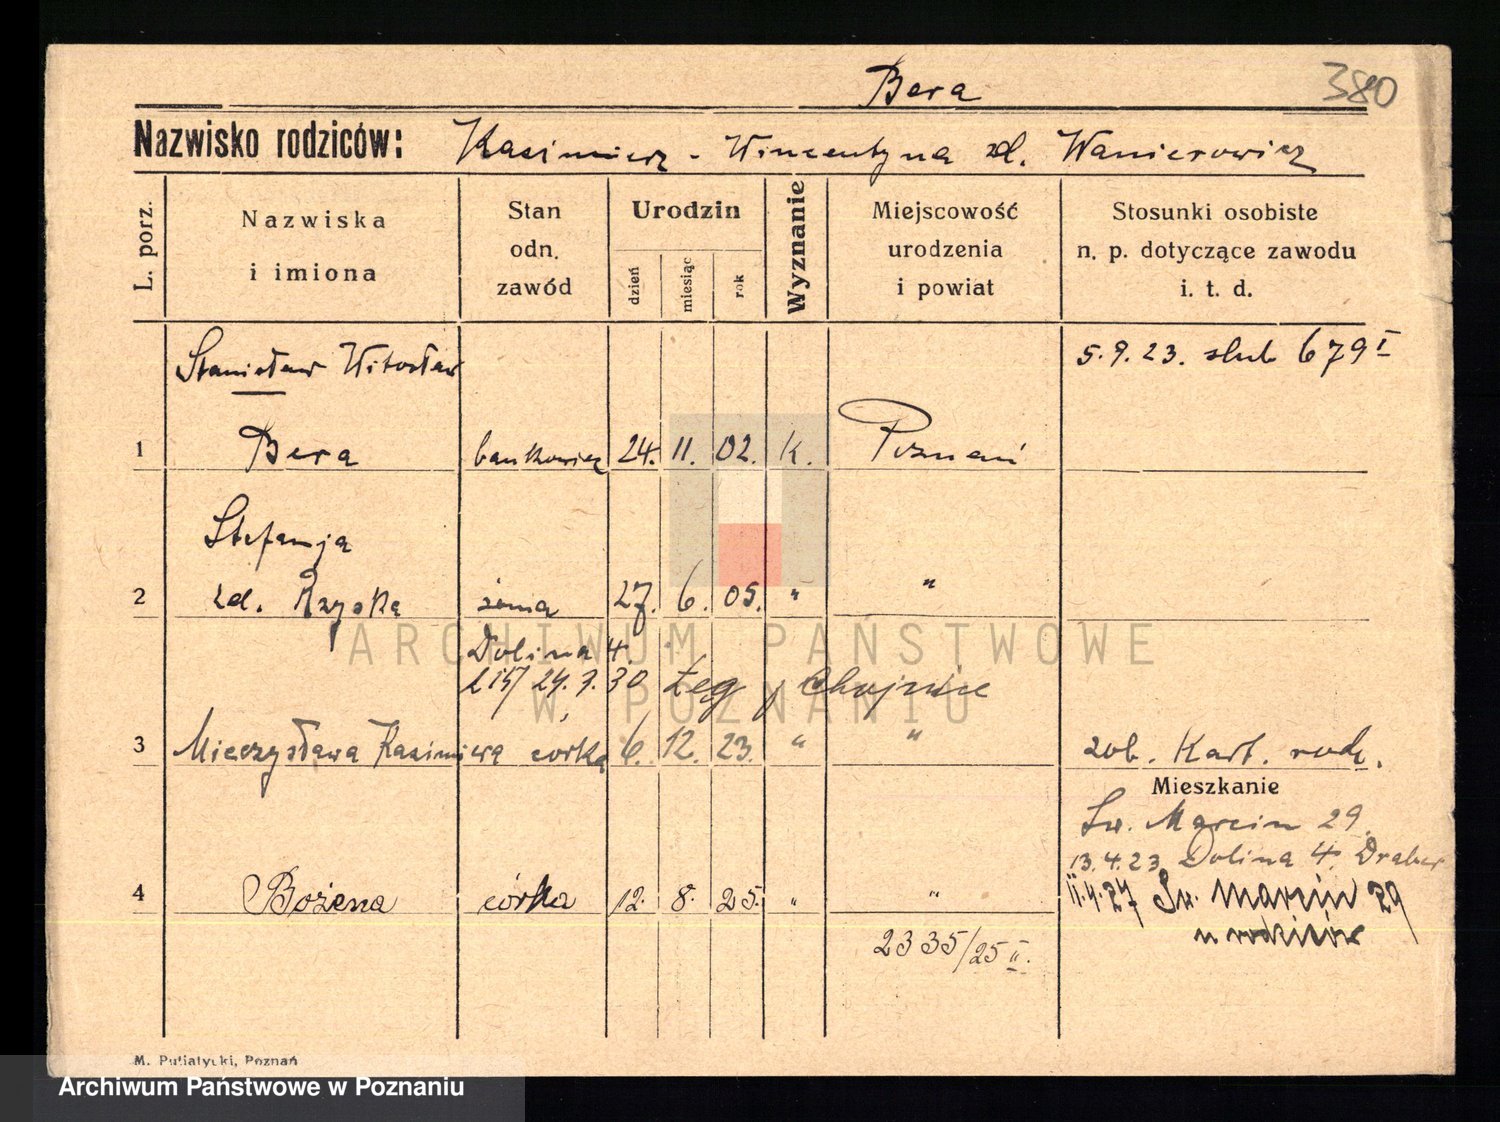 Bera
380
Nazwisko rodziców: Kazimierz - Wincentyna zd.
L. porz.
Nazwiska i imiona
Stan odn. zawód
Urodzin
dzień miesiąc rok
Wyznanie
Miejscowość urodzenia i powiat
Stosunki osobiste n. p. dotyczące zawodu i. t. d.
Stanisław Witosław
5.9.23. ślub 679 I
1 Bera bankowiec 24. 11. 02. K. Poznań
Stefanja
2 zd. żona 27. 6. 05. " "
Dolina 4.
Łeg, Chojnice
3 Mieczysława Kazimiera córka 6. 12. 23. " " zob. Kart. rodz.
Mieszkanie
Św. Marcin 29
13.4.23 Dolina 4
4 Bożena córka 12. 8. 25. " " 11.4.27 Św. Marcin 29
u rodziców
2335/25 II.
M. Putiatycki, Poznań
ARCHIWUM PAŃSTWOWE
W POZNANIU
Archiwum Państwowe w Poznaniu